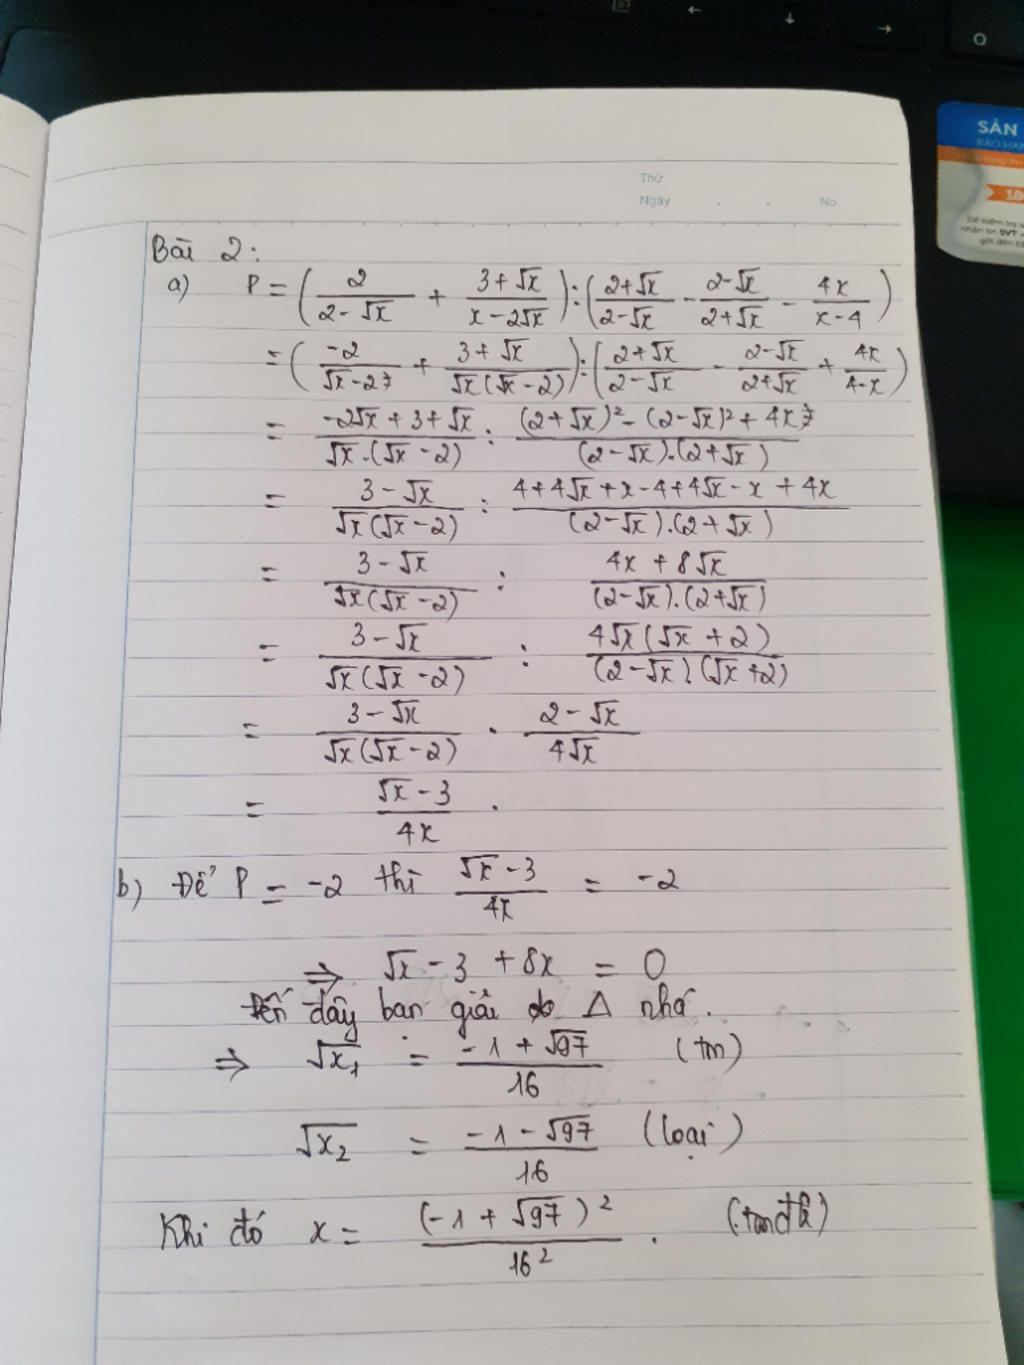 SẢN
BẢO HÀN
180
SVT
Thứ
Ngày . . No.
Bài 2:
a) P = (2/(2-√x) + (3+√x)/(x-2√x)) : ((2+√x)/(2-√x) - (2-√x)/(2+√x) - 4x/(x-4))
= (-2/(√x-2) + (3+√x)/(√x(√x-2))) : ((2+√x)/(2-√x) - (2-√x)/(2+√x) + 4x/(4-x))
= (-2√x+3+√x)/(√x.(√x-2)) : ((2+√x)²-(2-√x)²+4x)/((2-√x).(2+√x))
= (3-√x)/(√x(√x-2)) : (4+4√x+x-4+4√x-x+4x)/((2-√x).(2+√x))
= (3-√x)/(√x(√x-2)) : (4x+8√x)/((2-√x).(2+√x))
= (3-√x)/(√x(√x-2)) : (4√x(√x+2))/((2-√x)(√x+2))
= (3-√x)/(√x(√x-2)) . (2-√x)/(4√x)
= (√x-3)/(4x) .
b) Để P = -2 thì (√x-3)/(4x) = -2
⇒ √x - 3 + 8x = 0
Đến đây bạn giải Δ nhá.
⇒ √x₁ = (-1+√97)/16 (tm)
√x₂ = (-1-√97)/16 (loại)
Khi đó x = (-1+√97)²/16² . (tmđk)